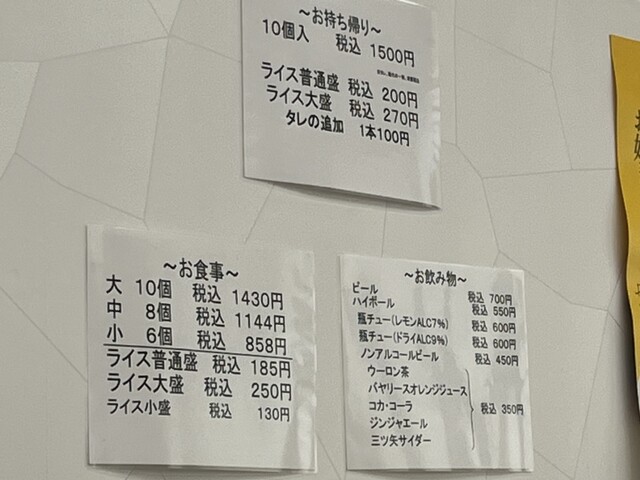 ～お持ち帰り～
10個入 税込 1500円
ライス普通盛 税込 200円
ライス大盛 税込 270円
タレの追加 1本100円
～お食事～
大 10個 税込 1430円
中 8個 税込 1144円
小 6個 税込 858円
ライス普通盛 税込 185円
ライス大盛 税込 250円
ライス小盛 税込 130円
～お飲み物～
ビール 税込 700円
ハイボール 税込 550円
瓶チュー(レモンALC7%) 税込 600円
瓶チュー(ドライALC9%) 税込 600円
ノンアルコールビール 税込 450円
ウーロン茶
バヤリースオレンジジュース
コカ・コーラ 税込 350円
ジンジャエール
三ツ矢サイダー